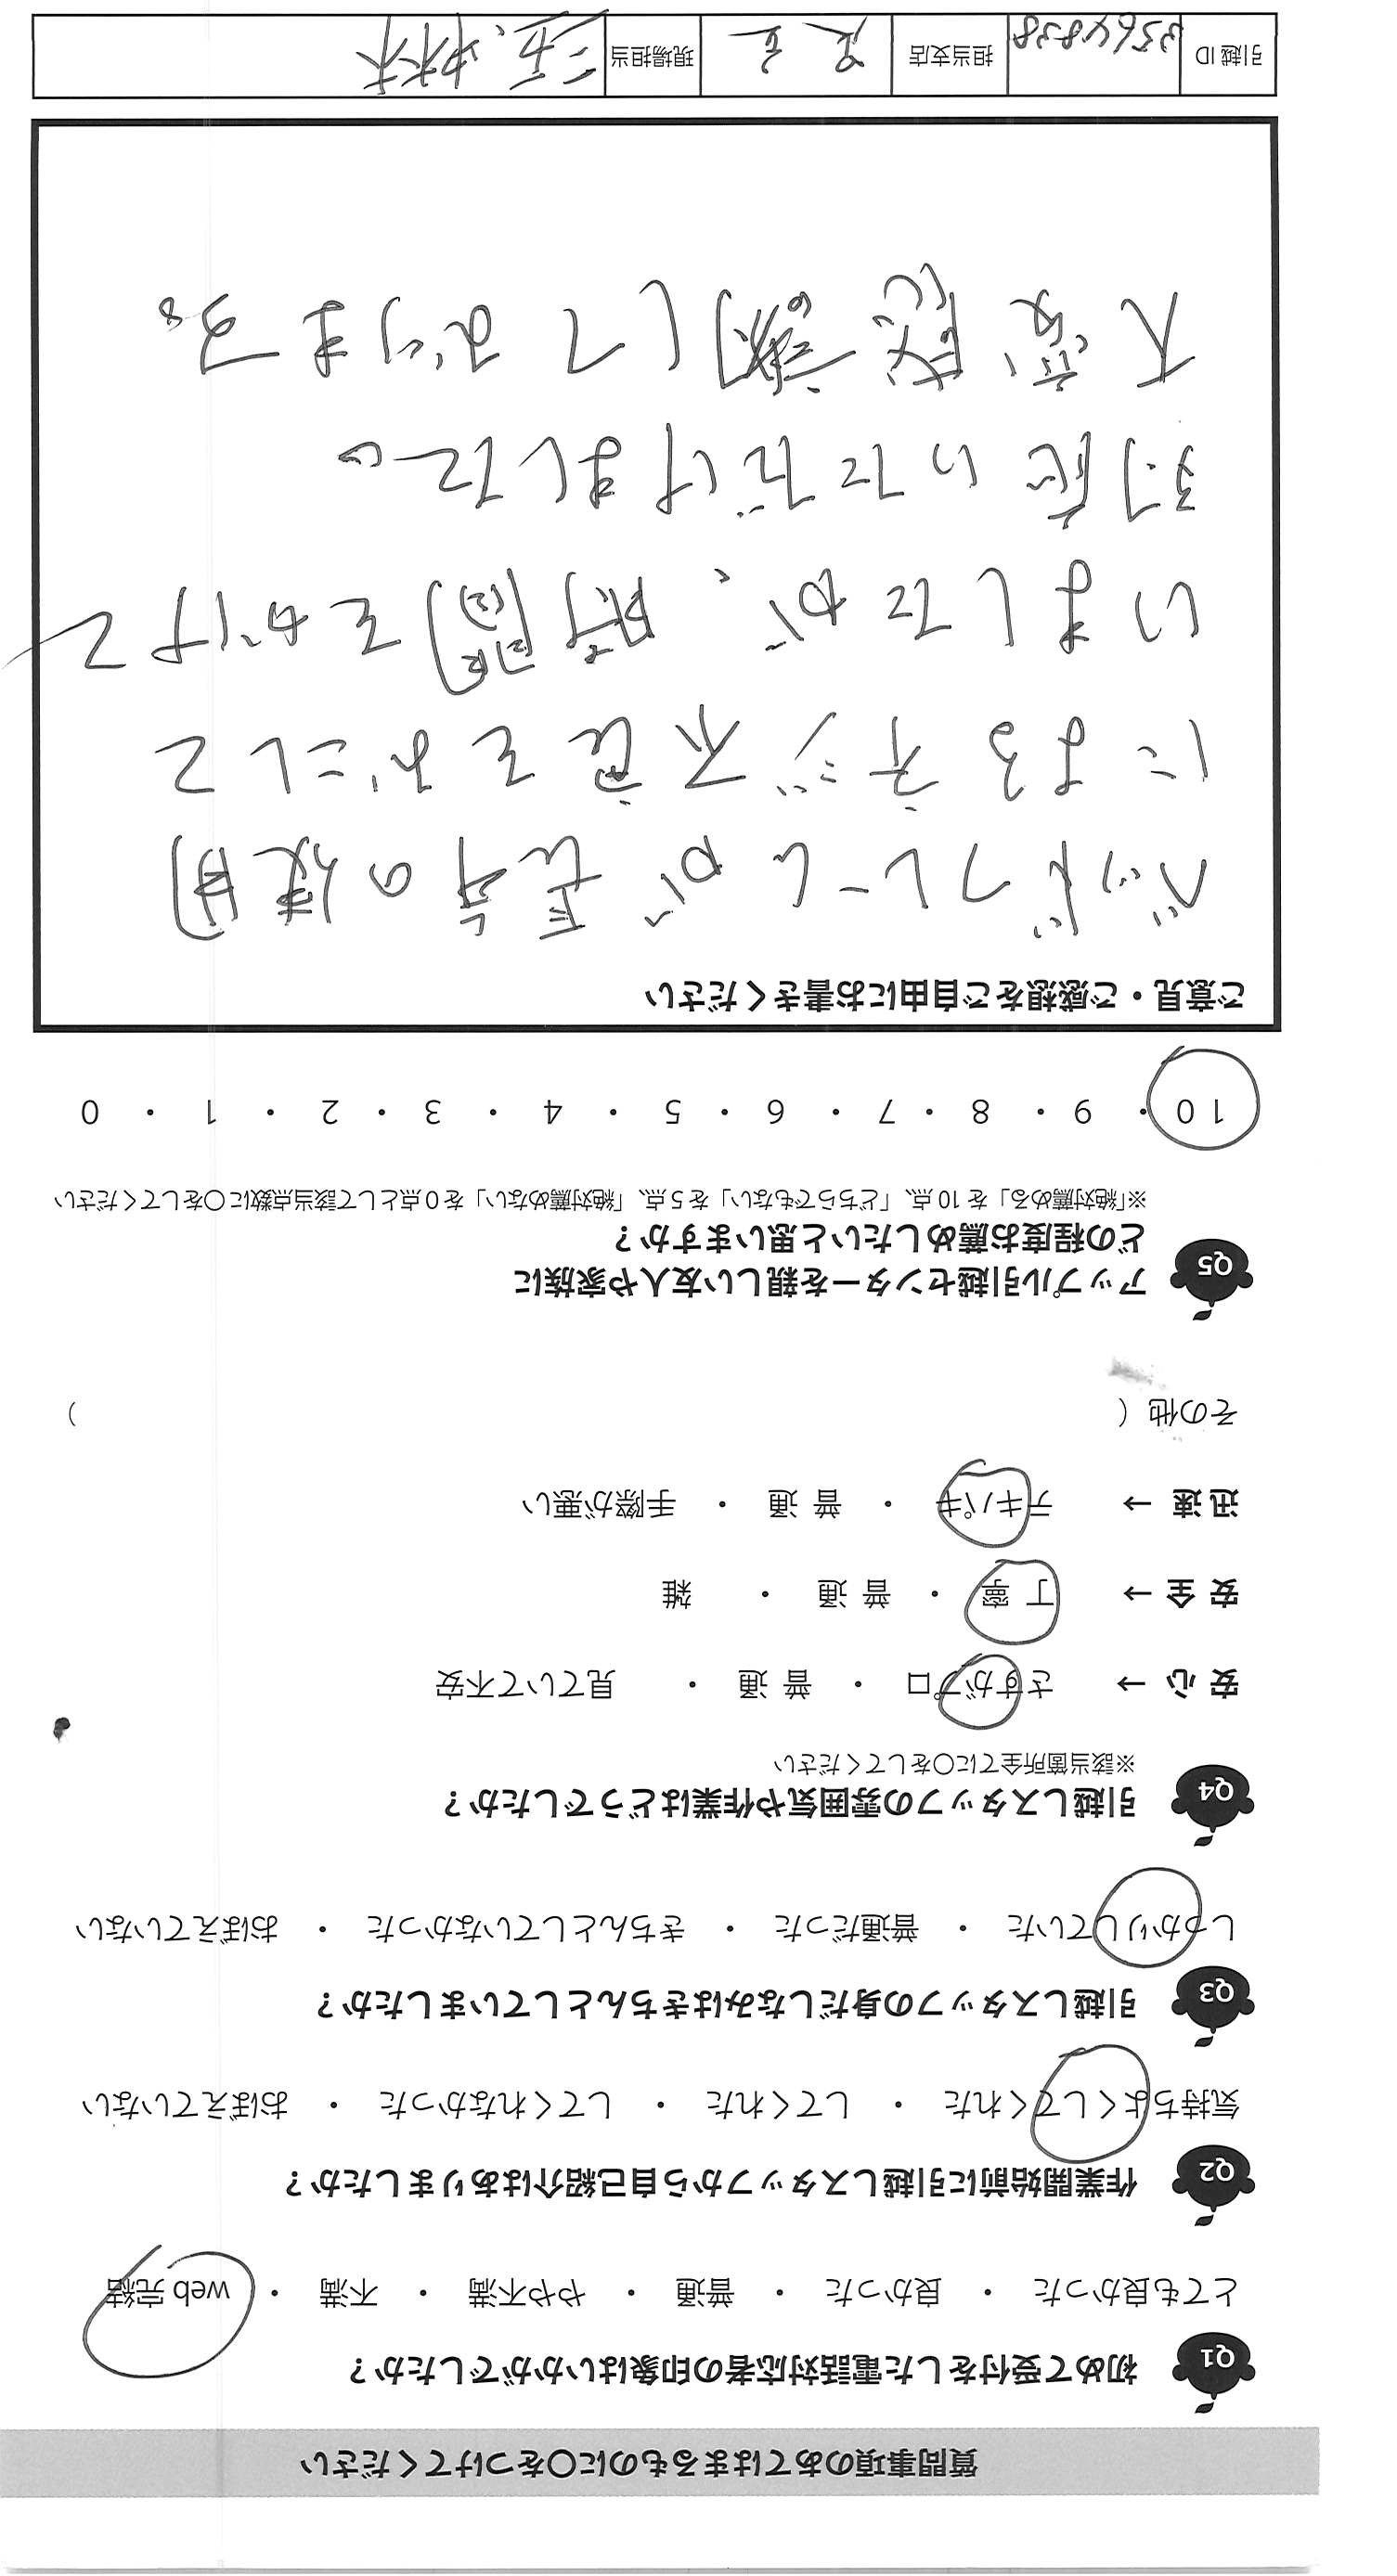 質問事項のあてはまるものに〇をつけてください
Q1 初めて受付をした電話対応者の印象はいかがでしたか？
とても良かった ・ 良かった ・ 普通 ・ やや不満 ・ 不満 ・ web 完結
Q2 作業開始前に引越しスタッフから自己紹介はありましたか？
気持ちよくしてくれた ・ してくれた ・ してくれなかった ・ おぼえていない
Q3 引越しスタッフの身だしなみはきちんとしていましたか？
しっかりしていた ・ 普通だった ・ きちんとしていなかった ・ おぼえていない
Q4 引越しスタッフの雰囲気や作業はどうでしたか？
※該当箇所全てに〇をしてください
安 心 → さすがプロ ・ 普 通 ・ 見ていて不安
安 全 → 丁 寧 ・ 普 通 ・ 雑
迅 速 → テキパキ ・ 普 通 ・ 手際が悪い
その他（ ）
Q5 アップル引越センターを親しい友人や家族に
どの程度お薦めしたいと思いますか？
※「絶対薦める」を 10 点、「どちらでもない」を 5 点、「絶対薦めない」を 0 点として該当点数に〇をしてください
10 ・ 9 ・ 8 ・ 7 ・ 6 ・ 5 ・ 4 ・ 3 ・ 2 ・ 1 ・ 0
ご意見・ご感想をご自由にお書きください
ベッドフレームが長年の使用
によるネジ不良をおこして
いましたが、時間をかけて
対応いただけました。
大変感謝しております。
引越 ID 3564838 担当支店 足立 現場担当 三五、林